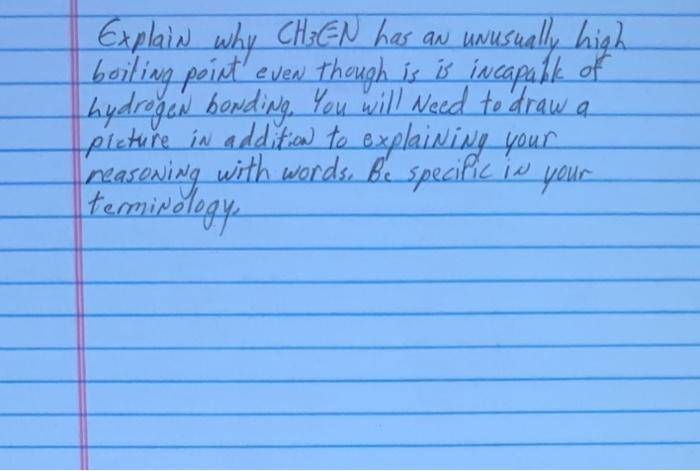 Explain why CH3C≡N has an unusually high
boiling point even though is is incapable of
hydrogen bonding. You will Need to draw a
picture in addition to explaining your
reasoning with words. Be specific in your
terminology.